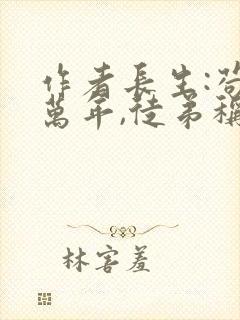 作者長生:苟
萬年,徒弟稱
林害羞